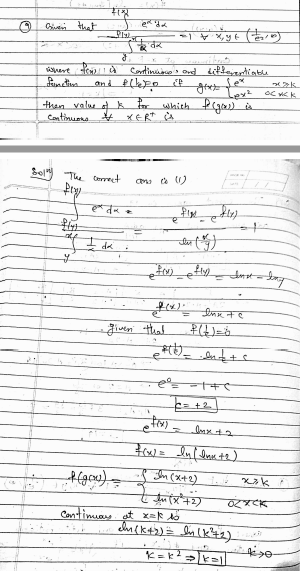 f(x)
(9) Given that ∫ e^x dx
f(y) = 1 ∀ x, y ∈ (1/e², ∞)
x
∫ 1/x dx
y
where f(x) is continuous and differentiable
function and f(1/e) = 0 if g(x) = { e^x x ≥ k
e^x² 0 < x < k
then value of k for which f(g(x)) is
continuous ∀ x ∈ R⁺ is
Solⁿ) The correct ans is (1)
f(x)
∫ e^x dx =
f(y) = e^f(x) − e^f(y) / ln(x/y) = 1
x
∫ 1/x dx
y
e^f(x) − e^f(y) = lnx − lny
e^f(x) = lnx + c
given that f(1/e) = 0
e^f(1/e) = ln 1/e + c
e⁰ = −1 + c
c = +2
e^f(x) = lnx + 2
f(x) = ln(lnx + 2)
f(g(x)) = { ln(x+2) x ≥ k
ln(x²+2) 0 < x < k
Continuous at x = k so
ln(k+2) = ln(k²+2)
k = k² ⇒ k = 1 k > 0